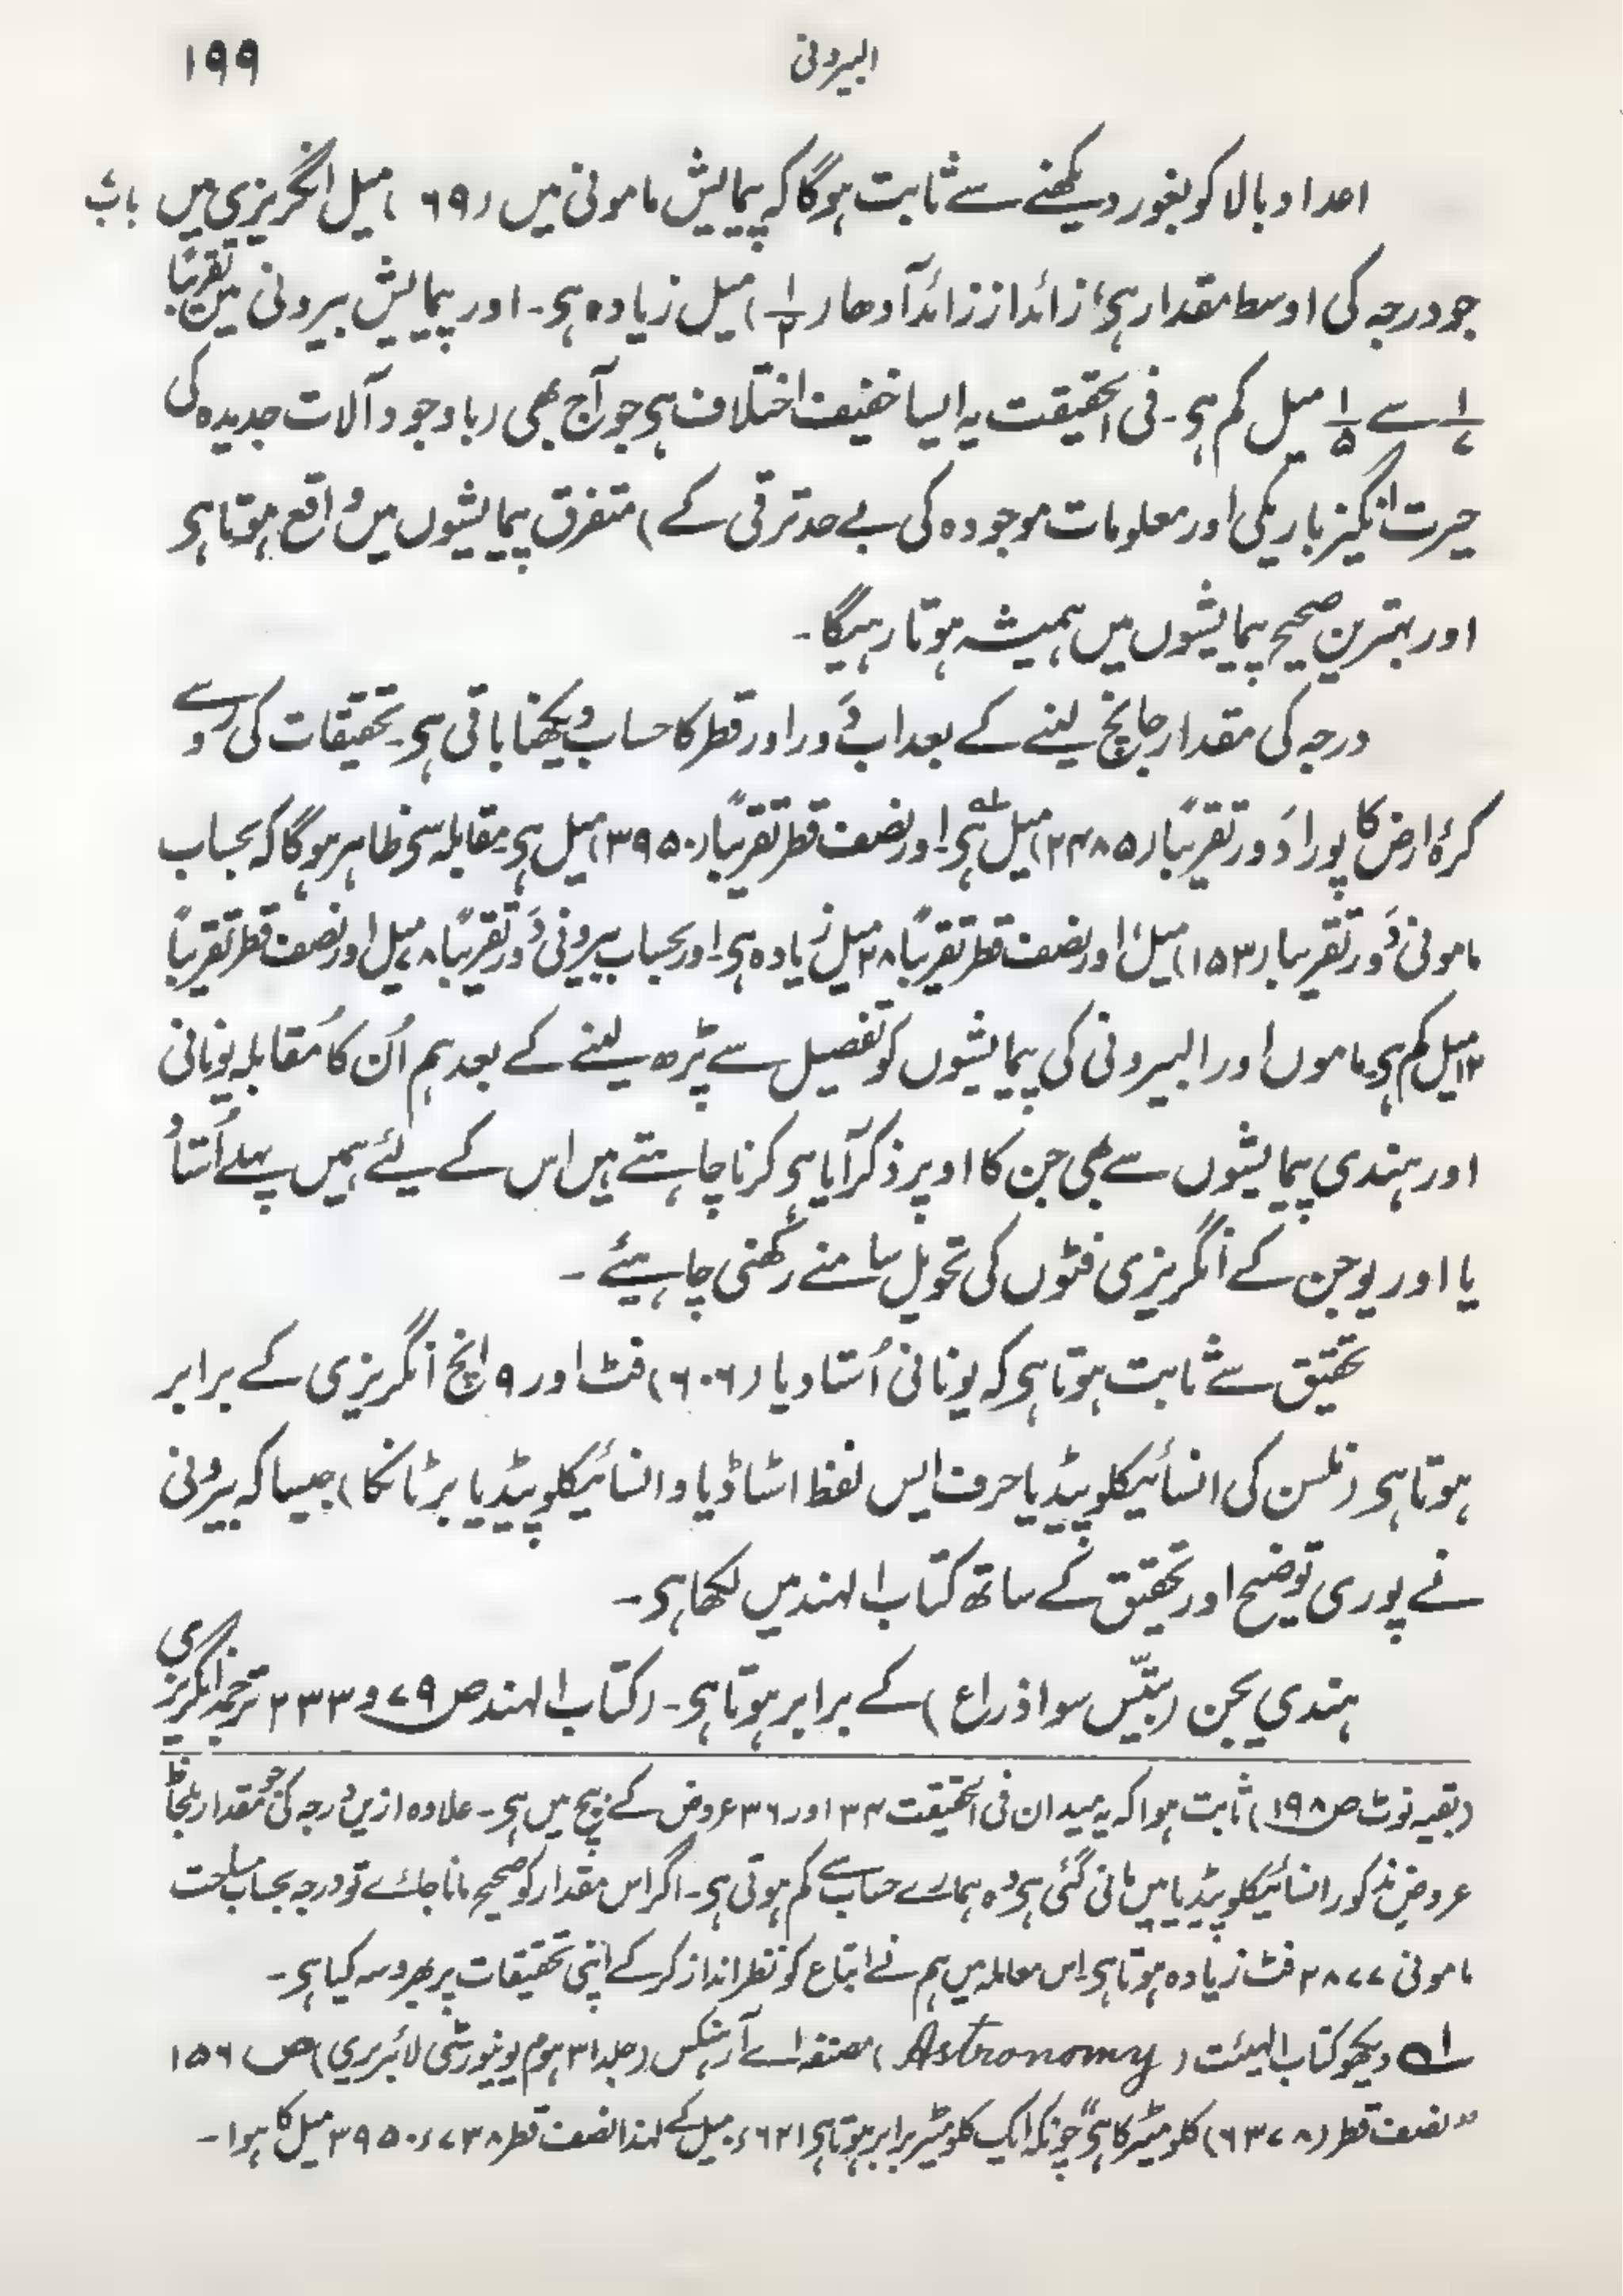 البیرونی ۱۹۹
اعداد بالا کو بغور دیکھنے سے ثابت ہوگا کہ پیمایش مامونی میں (۶۹) میل انگریزی میں باب
جو درجہ کی اوسط مقدار ہی، زائد از زائد آدھا (۱/۲) میل زیادہ ہی۔ اور پیمایش بیرونی میں تقریبًا
۱/۷ سے ۱/۵ میل کم ہی۔ فی الحقیقت یہ ایسا خفیف اختلاف ہی جو آج بھی (باوجود آلات جدیدہ کی
حیرت انگیز باریکی اور معلومات موجودہ کی بے حد ترقی کے) متفرق پیمایشوں میں واقع ہوتا ہی
اور بہترین صحیح پیمایشوں میں ہمیشہ ہوتا رہیگا۔
درجہ کی مقدار جانچ لینے کے بعد اب دَور اور قطر کا حساب دیکھنا باقی ہی۔ تحقیقات کی رو سے
کرۂ ارض کا پورا دَور تقریبًا (۲۴۸۵۰) میل ہی۔ اور نصف قطر تقریبًا (۳۹۵۰) میل ہی۔ مقابلہ سی ظاہر ہوگا کہ بحساب
مامونی دَور تقریبا (۱۵۳) میل، اور نصف قطر تقریبًا ۲۸ میل زیادہ ہی۔ اور بحساب بیرونی دَور تقریبًا ۸۰ میل اور نصف قطر تقریبًا
۱۲ میل کم ہی۔ ماموں اور البیرونی کی پیمایشوں کو تفصیل سے پڑھ لینے کے بعد ہم اُن کا مُقابلہ یونانی
اور ہندی پیمایشوں سے بھی جن کا اوپر ذکر آیا ہی کرنا چاہتے ہیں اس کے لیئے ہمیں پہلے اُستاد
یا اور یوجن کے انگریزی فٹوں کی تحویل سامنے رکھنی چاہیئے۔
تحقیق سے ثابت ہوتا ہی کہ یونانی اُستادیا (۶۰۶) فٹ اور ۹ انچ انگریزی کے برابر
ہوتا ہی (نلسن کی انسائیکلوپیڈیا حرف ایس لفظ اسٹاڈیا و انسائیکلوپیڈیا برٹانکا) جیسا کہ بیرونی
نے پوری توضیح اور تحقیق کے ساتھ کتاب الہند میں لکھا ہی۔
ہندی یجن (بتّیس سوا ذراع) کے برابر ہوتا ہی۔ (کتاب الہند ص ۷۹ و ۲۳۳ ترجمۂ انگریزی
(بقیہ نوٹ ص ۱۹۸) ثابت ہوا کہ یہ میدان فی الحقیقت ۳۴ اور ۳۶ عروض کے بیچ میں ہی۔ علاوہ ازیں درجہ کی جو مقدار بلحاظ
عروض مذکور انسائیکلوپیڈیا میں مانی گئی ہی وہ ہمارے حساب سے کم ہوتی ہی۔ اگر اس مقدار کو صحیح مانا جائے تو درجہ بحساب مساحت
مامونی ۲۸۷۷ فٹ زیادہ ہوتا ہی۔ اس معاملہ میں ہم نے اتباع کو نظر انداز کرکے اپنی تحقیقات پر بھروسہ کیا ہی۔
۱؎ دیکھو کتاب الہیئت (Astronomy) مصنفہ اے آر ہنکس (جلد ۳۱ ہوم یونیورسٹی لائبریری) ص ۱۵۶
”نصف قطر (۶۳۷۸) کلومیٹر کا ہی“ چونکہ ایک کلومیٹر برابر ہوتا ہی ۶۲۱ء۰ میل کے لہذا نصف قطر ۷۳۸ء۳۹۵۰ میل کا ہوا۔